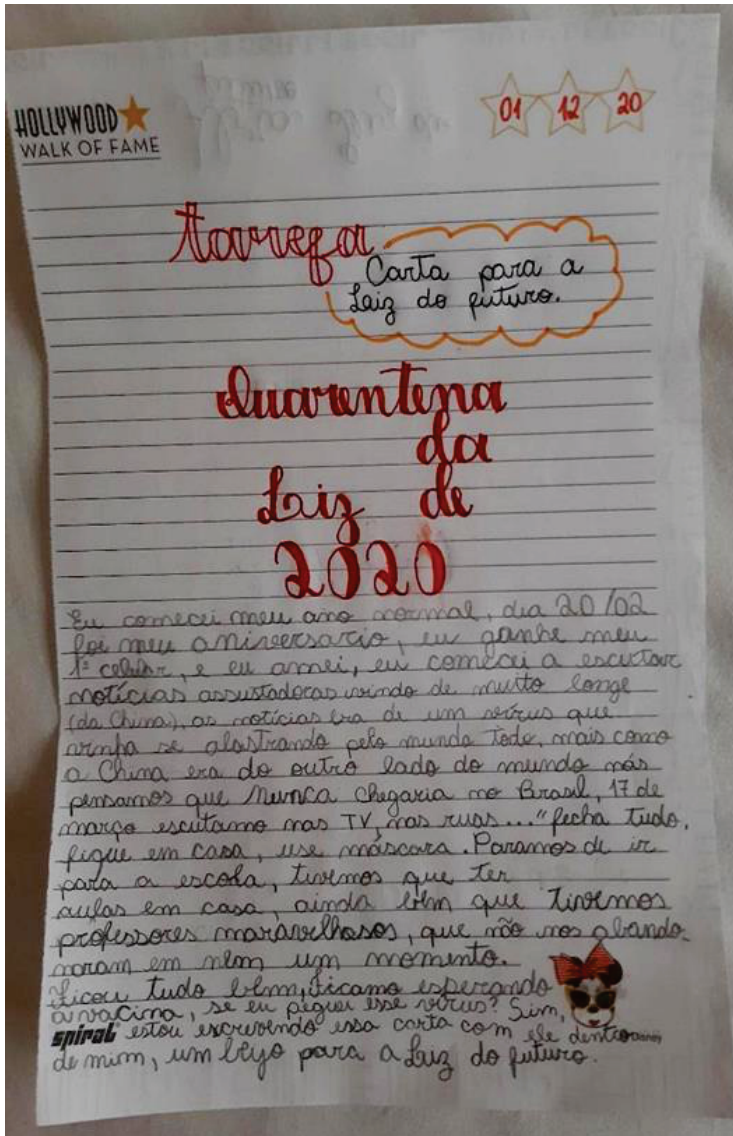 HOLLYWOOD
WALK OF FAME
01 12 20
tarrefa
Carta para a
Laiz do futuro.
Quarentena
da
Laiz de
2020
Eu comecei meu ano normal, dia 20/02
foi meu aniversario, eu ganhe meu
1º celular, e eu amei, eu comecei a escutar
notícias assustadoras vindo de muito longe
(da China), as notícias era de um vírus que
vinha se alastrando pelo mundo todo, mais como
a China era do outro lado do mundo nós
pensamos que nunca chegaria no Brasil, 17 de
março escutamo nas TV, nas ruas... "fecha tudo,
fique em casa, use máscara. Paramos de ir
para a escola, tivemos que ter
aulas em casa, ainda bem que tivemos
professores maravilhosos, que não nos abando-
naram em nem um momento.
Ficou tudo bem, ficamo esperando
a vacina, se eu peguei esse vírus? Sim,
spiral estou escrevendo essa carta com ele dentro
de mim, um beijo para a Laiz do futuro.